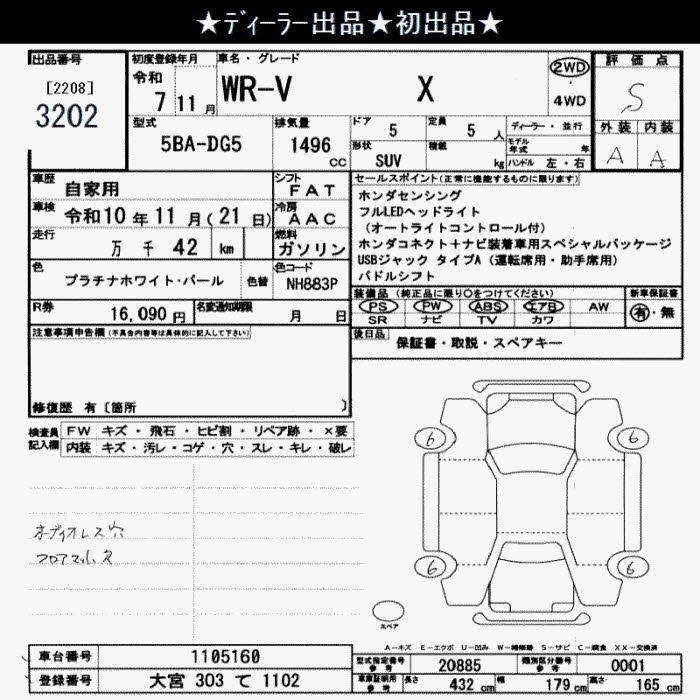 ★ディーラー出品★初出品★
出品番号
[2208]
3202
初度登録年月
令和
7 11 月
車名・グレード
WR-V X
2WD
・
4WD
評価点
S
外装 内装
A A
型式
5BA-DG5
排気量
1496
cc
ドア
5
定員
5 人
形状
SUV
積載
kg
ディーラー・並行
モデル年式 年
ハンドル 左・右
車歴
自家用
シフト
FAT
車検
令和10 年 11 月(21 日)
冷房
AAC
走行
万 千 42 km
燃料
ガソリン
色
プラチナホワイト・パール
色替
色コード
NH883P
R券
16,090 円
名変通知期限
月 日
セールスポイント(正常に機能するものに限ります)
ホンダセンシング
フルLEDヘッドライト
(オートライトコントロール付)
ホンダコネクト+ナビ装着車用スペシャルパッケージ
USBジャック タイプA(運転席用・助手席用)
パドルシフト
装備品(純正品に限り○をつけてください)
PS PW ABS エアB AW
SR ナビ TV カワ
新車保証書
有・無
後日品
保証書・取説・スペアキー
注意事項申告欄(不具合内容等は具体的に記入して下さい)
修復歴 有〔箇所 〕
検査員記入欄
FW キズ・飛石・ヒビ割・リペア跡・×要
内装 キズ・汚レ・コゲ・穴・スレ・キレ・破レ
オーディオレス穴
フロアマットx
6 6
6 6
スペア
A-キズ E-エクボ U-凹み W-補修跡 S-サビ C-腐食 XX-交換済
車台番号
1105160
登録番号
大宮 303 て 1102
型式指定番号
参考
20885
類別区分番号
参考
0001
車庫証明用
参考
長さ 432 cm 幅 179 cm 高さ 165 cm